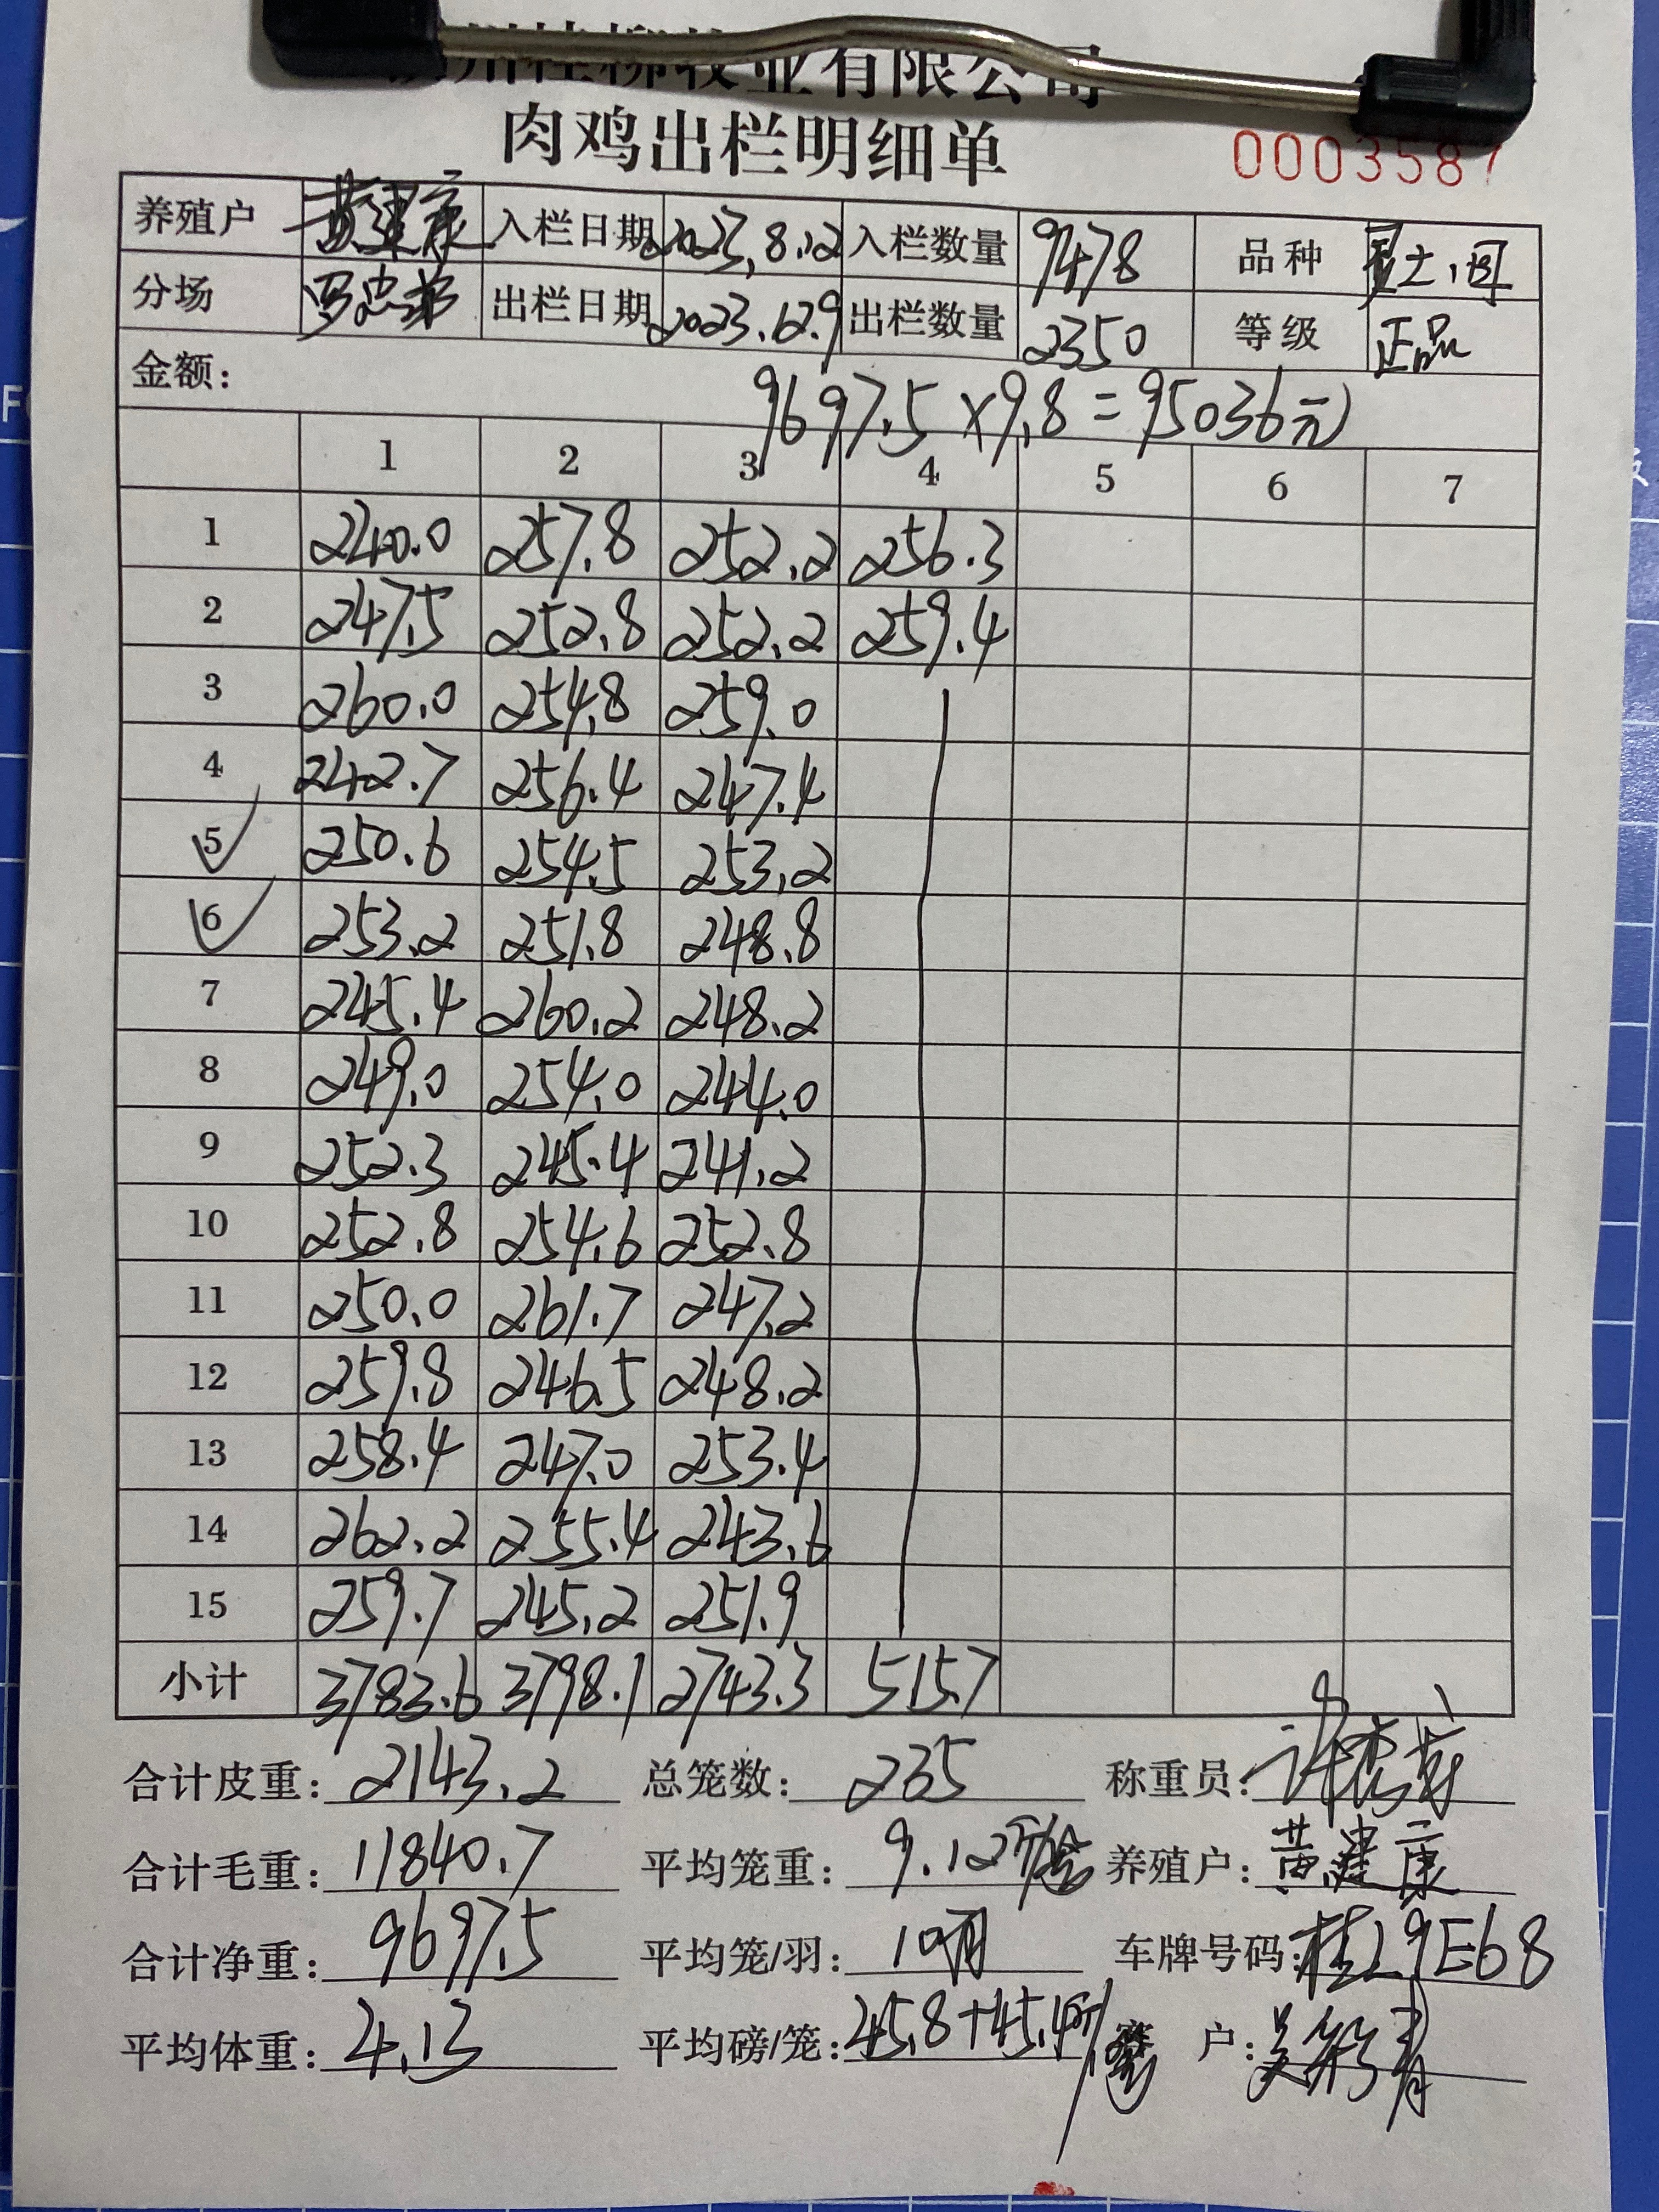 牧业有限公司
肉鸡出栏明细单
0003587
养殖户 黄建康 入栏日期 2023,8.12 入栏数量 9478 品种
分场 出栏日期 2023.12.9 出栏数量 2350 等级 正品
金额: 9697.5×9.8=95036元
1 2 3 4 5 6 7
1 240.0 257.8 252.2 256.3
2 247.5 252.8 252.2 259.4
3 260.0 254.8 259.0
4 242.7 256.4 247.4
5 250.6 254.5 253.2
6 253.2 251.8 248.8
7 245.4 260.2 248.2
8 249.0 254.0 244.0
9 252.3 245.4 241.2
10 252.8 254.6 252.8
11 250.0 261.7 247.2
12 259.8 246.5 248.2
13 258.4 247.0 253.4
14 262.2 255.4 243.6
15 259.7 245.2 251.9
小计 3783.6 3798.1 2743.3 515.7
合计皮重: 2143.2 总笼数: 235 称重员:
合计毛重: 11840.7 平均笼重: 9.12 养殖户: 黄建康
合计净重: 9697.5 平均笼/羽: 10 车牌号码: 桂L9E68
平均体重: 4.13 平均磅/笼: 45.8+45.4 户: